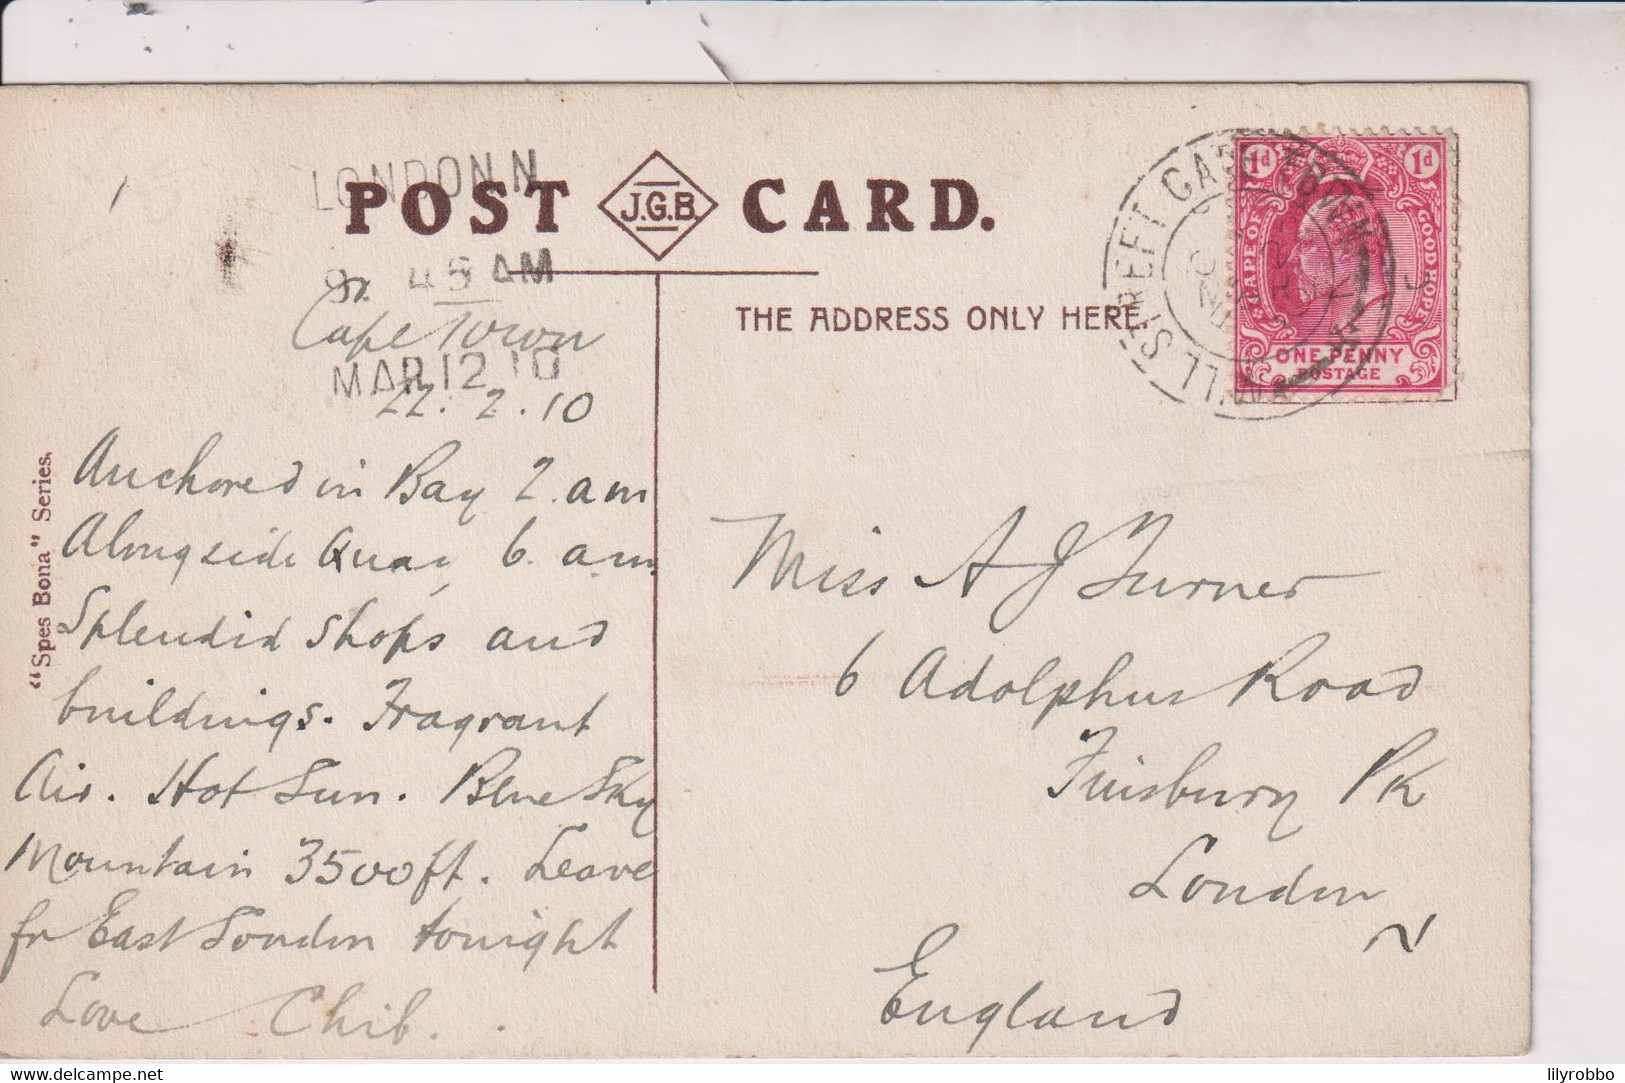 LONDON N
POST J.G.B. CARD.
4 5 AM
THE ADDRESS ONLY HERE
Cape Town
MAR 12 10
22. 2. 10
Anchored in Bay 2. am
Alongside Quay 6. am.
Splendid shops and
buildings. Fragrant
Air. Hot Sun. Blue Sky
Mountain 3500 ft. Leave
for East London tonight
Love Chib.
"Spes Bona" Series.
CAPE TOWN
MILL STREET
1d 1d
CAPE OF GOOD HOPE
ONE PENNY
POSTAGE
Miss A J Turner
6 Adolphus Road
Finsbury Pk
London
N
England
lilyrobbo